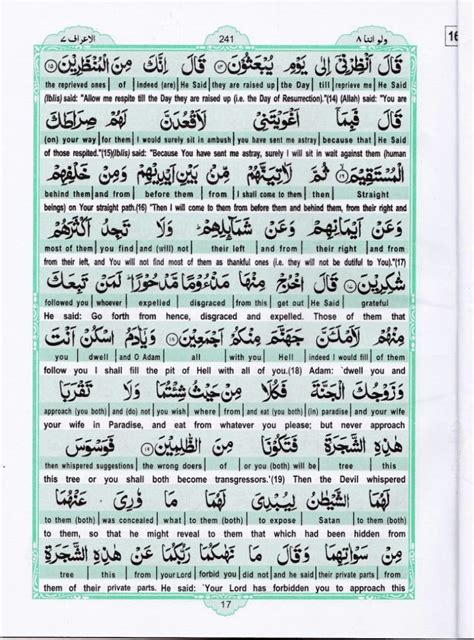 الاعراف ٧ 241 ولو اننا ٨
قَالَ اَنْظِرْنِيْٓ اِلٰى يَوْمِ يُبْعَثُوْنَ ۝١٤ قَالَ اِنَّكَ مِنَ الْمُنْظَرِيْنَ ۝١٥
the reprieved ones | of | indeed (are) | He Said | they are raised up | the Day | till | reprieve me | He Said
(Iblis) said: "Allow me respite till the Day they are raised up (i.e. the Day of Resurrection)."(14) (Allah) said: "You are
قَالَ فَبِمَآ اَغْوَيْتَنِيْ لَاَقْعُدَنَّ لَهُمْ صِرَاطَكَ
(on) your way | for them | I would surely sit in ambush | you have sent me astray | because that | He Said
of those respited."(15)(Iblis) said: "Because You have sent me astray, surely I will sit in wait against them (human
الْمُسْتَقِيْمَ ۝١٦ ثُمَّ لَاٰتِيَنَّهُمْ مِّنْۢ بَيْنِ اَيْدِيْهِمْ وَمِنْ خَلْفِهِمْ
behind them | and from | before them | from | I shall come to them | then | Straight
beings) on Your straight path.(16) "Then I will come to them from before them and behind them, from their right and
وَعَنْ اَيْمَانِهِمْ وَعَنْ شَمَآئِلِهِمْ وَلَا تَجِدُ اَكْثَرَهُمْ
most of them | you find | and (will) not | their left | and from | their right | and from
from their left, and You will not find most of them as thankful ones (i.e. they will not be dutiful to You)."(17)
شٰكِرِيْنَ ۝١٧ قَالَ اخْرُجْ مِنْهَا مَذْءُوْمًا مَّدْحُوْرًا لَمَنْ تَبِعَكَ
followed you | whoever | expelled | disgraced | from this | get out | He Said | grateful
He said: Go forth from hence, disgraced and expelled. Those of them that
مِنْهُمْ لَاَمْلَئَنَّ جَهَنَّمَ مِنْكُمْ اَجْمَعِيْنَ ۝١٨ وَيٰٓاٰدَمُ اسْكُنْ اَنْتَ
you | dwell | and O Adam | all | with you | Hell | indeed I would fill | of them
follow you I shall fill the pit of Hell with all of you.(18) Adam: `dwell you and
وَزَوْجُكَ الْجَنَّةَ فَكُلَا مِنْ حَيْثُ شِئْتُمَا وَلَا تَقْرَبَا
approach (you both) | and (do) not | you wish | where | from | and eat (you both) | (in) paradise | and your wife
your wife in Paradise, and eat from whatever you please; but never approach
هٰذِهِ الشَّجَرَةَ فَتَكُوْنَا مِنَ الظّٰلِمِيْنَ ۝١٩ فَوَسْوَسَ
then whispered suggestions | the wrong doers | of | or you (both) will be | tree | this
this tree or you shall both become transgressors.'(19) Then the Devil whispered
لَهُمَا الشَّيْطٰنُ لِيُبْدِيَ لَهُمَا مَا وٗرِيَ عَنْهُمَا
to them (both) | was concealed | what | to them (both) | to expose | Satan | to them (both)
to them, so that he might reveal to them that which had been hidden from
مِنْ سَوْاٰتِهِمَا وَقَالَ مَا نَهٰىكُمَا رَبُّكُمَا عَنْ هٰذِهِ الشَّجَرَةِ
tree | this | from | your Lord | forbid you | did not | and he said | their private parts | from
them of their private parts. He said: `Your Lord has forbidden you to approach this
17